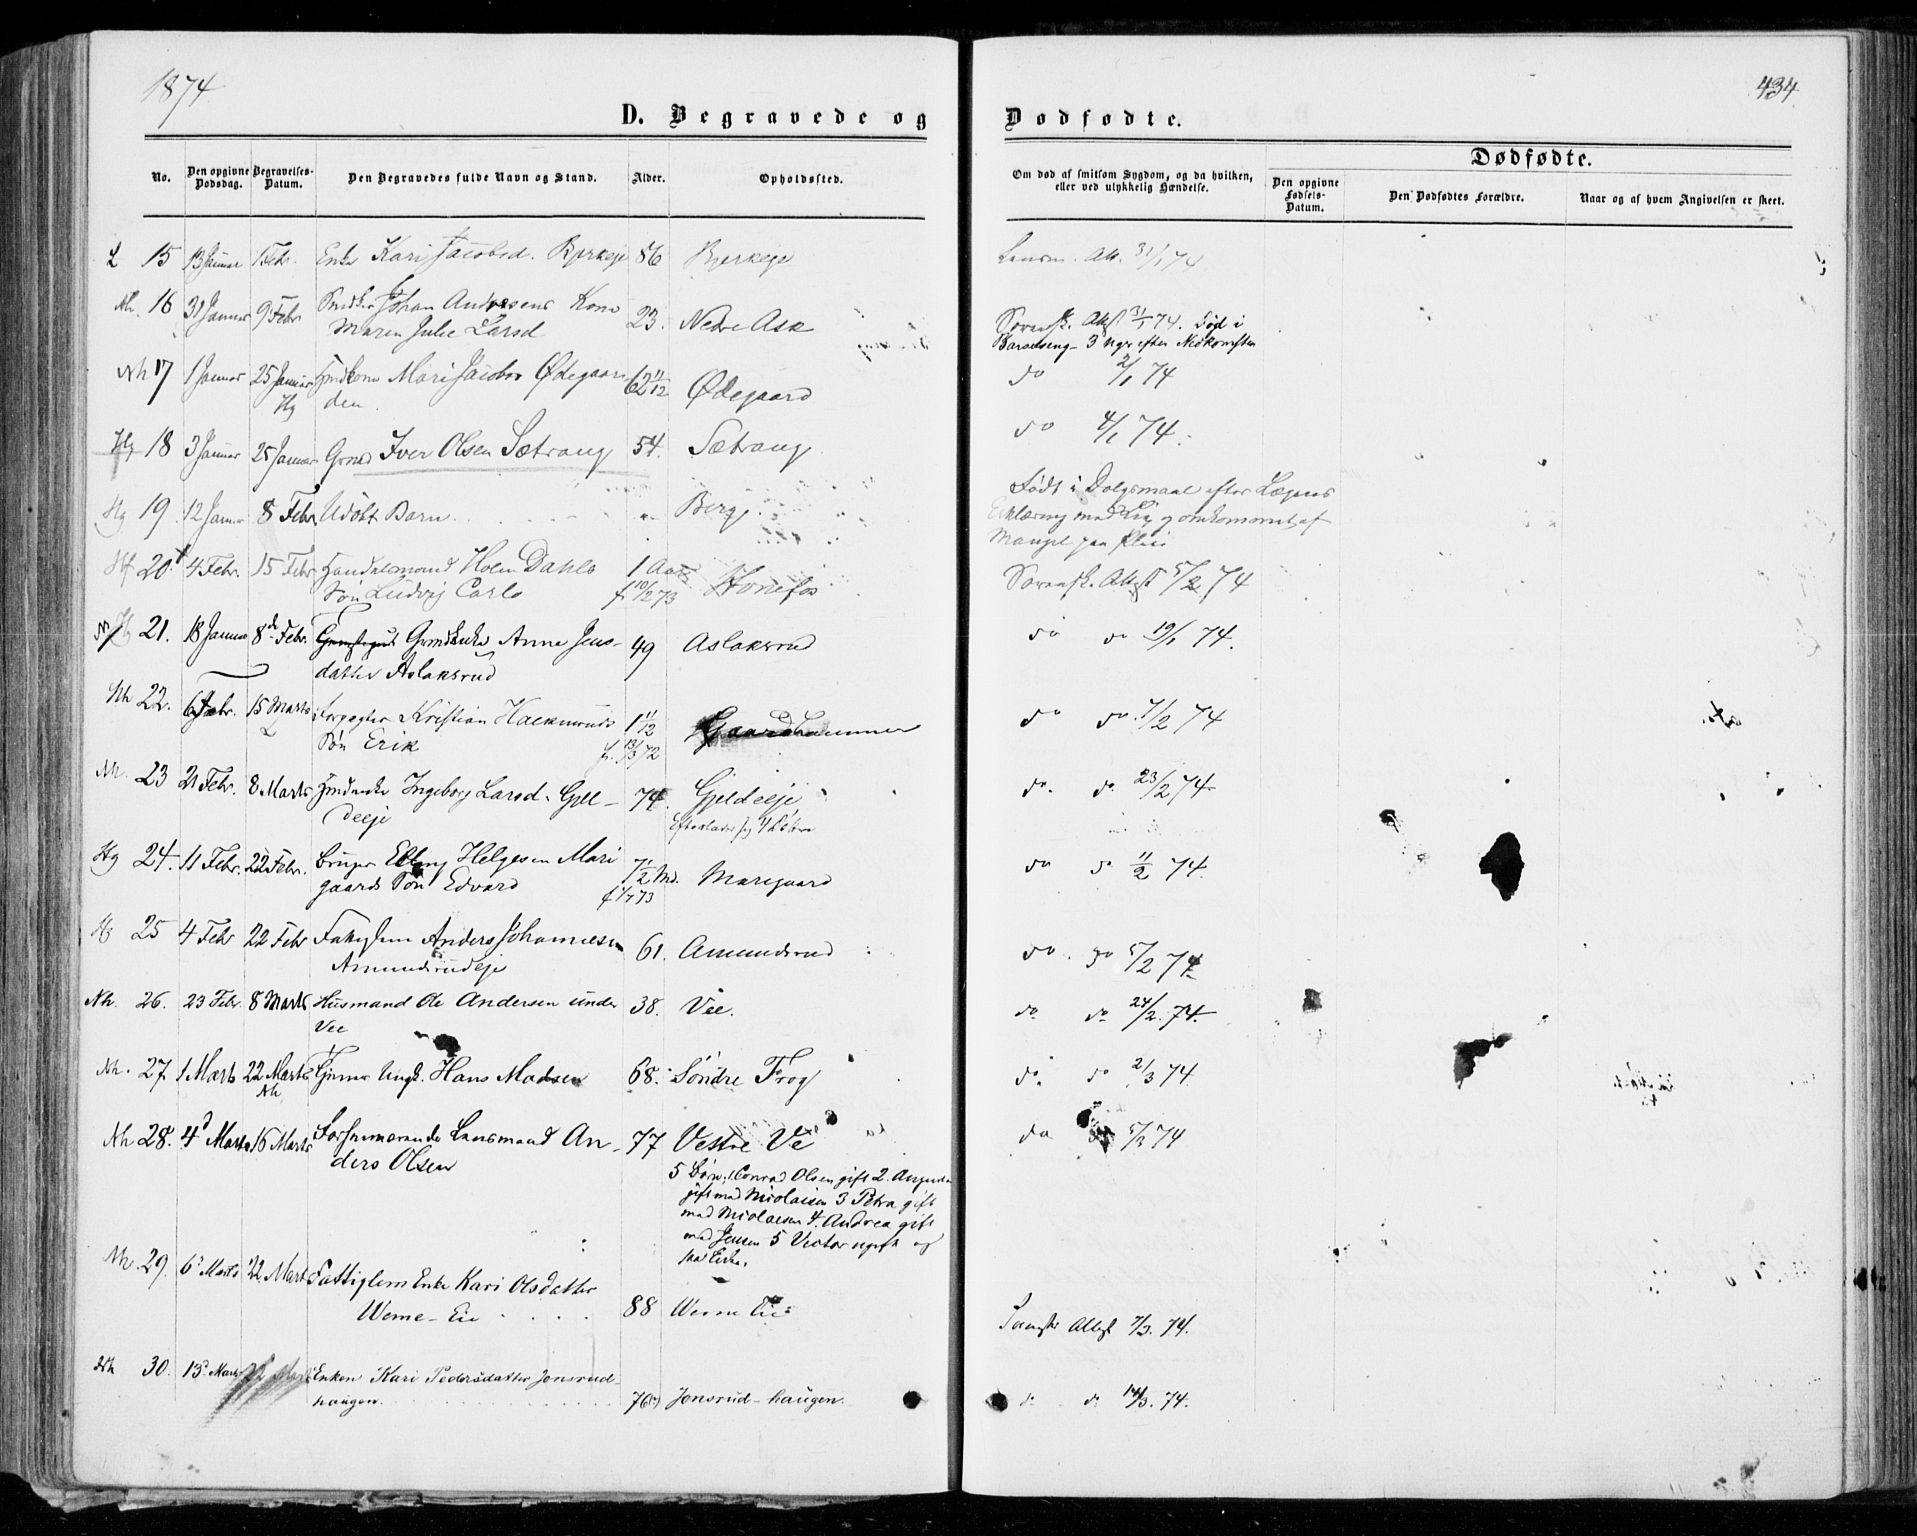 1874
434
D. Begravede og
Dødfødte.
No.
Den opgivne Dødsdag.
Begravelses-Datum.
Den Begravedes fulde Navn og Stand.
Alder.
Opholdssted.
Om død af smitsom Sygdom, og da hvilken, eller ved ulykkelig Hændelse.
Dødfødte.
Den opgivne Fødsels-Datum.
Den Dødfødtes Forældre.
Naar og af hvem Angivelsen er skeet.
L 15 13 Januar 1 Febr. Enke Kari Jacobsd. Bjerkeje 86 Bjerkeje Lensm. Att. 31/1 74
Nh. 16 31 Januar 9 Febr Johan Andresens Kone 23. Nedre Ask Sorensk. Att. 31/1 74. Død i
Maren Julie Larsd Barselseng 3 Uger efter Nedkomsten
Nh 17 1 Januar 25 Januar Mari Jacobs Ødegaar 62 11/12 Ødegaard do 2/1 74
Hg den.
Hg 18 3 Januar 25 Januar Grmd Iver Olsen Sætrang 54. Sætrang do 4/1 74.
Hg 19. 12 Januar 8 Febr. Udöbt Barn. " Berg. Födt i Dolgsmaal efter Lægens
Erklæring med Liv og omkommet af
Mangel paa Pleie
Hf 20. 4 Febr. 15 Febr Handelsmand Holm Dahls 1 Aar Hønefos Sorensk. Attest 5/2 74
Søn Ludvig Carlo f. 10/2 73
21. 18 Januar 8de Febr. Grmdenke Anne Jens- 49 Aslaksrud do do 19/1 74.
datter Aslaksrud
Nh 22. 6 Febr. 15 Marts Forpagter Kristian Haakensruds 1 11/12 Gaardhammer do do. 7/2 74
Søn Erik f. 13/3 72
Nh. 23 21 Febr. 8 Marts Ingeborg Larsd. Gjel- 74. Gjeldeeje do. do. 23/2 74
deeje Efterlader sig 4 Döbre
Hg 24. 11 Febr. 22 Febr. Bruger Elling Helgesen Mari 7 1/2 Md. Marigaard do do 11/2 74.
gaards Søn Edvard f. 1/7 73
Hg 25 4 Febr 22 Febr Fattiglem Anders Johannesen 61. Amundsrud do. do 5/2 74
Amundsrudeje
Nh. 26. 23 Febr. 8 Marts Husmand Ole Andersen under 38. Vee. do. do. 24/2. 74.
Vee
Nh. 27. 1 Marts 22 Marts Ungk. Hans Madsen 68. Søndre Frog do. do 2/3 74.
Nh
Nh 28. 4d Marts 16 Marts Forhenværende Lensmand An- 77 Vestre Ve do 5/3 74
ders Olsen 5 Børn: 1. Conrad Olsen gift 2. Augusta
gift med Nicolaisen 3 Petra gift
med Nicolaesen 4. Andrea gift
med Jensen 5 Victor ugift og
saa Enke.
Nh. 29. 6d Marts 22 Marts Fattiglem Enke Kari Olsdatter
Werne-Eie 88 Werne Eie Attest 7/3. 74.
Nh 30. 13d Marts 22 Marts Enken Kari Pedersdatter Jonsrud-
haugen. 76 Jonsrud-haugen. do do 14/3. 74.